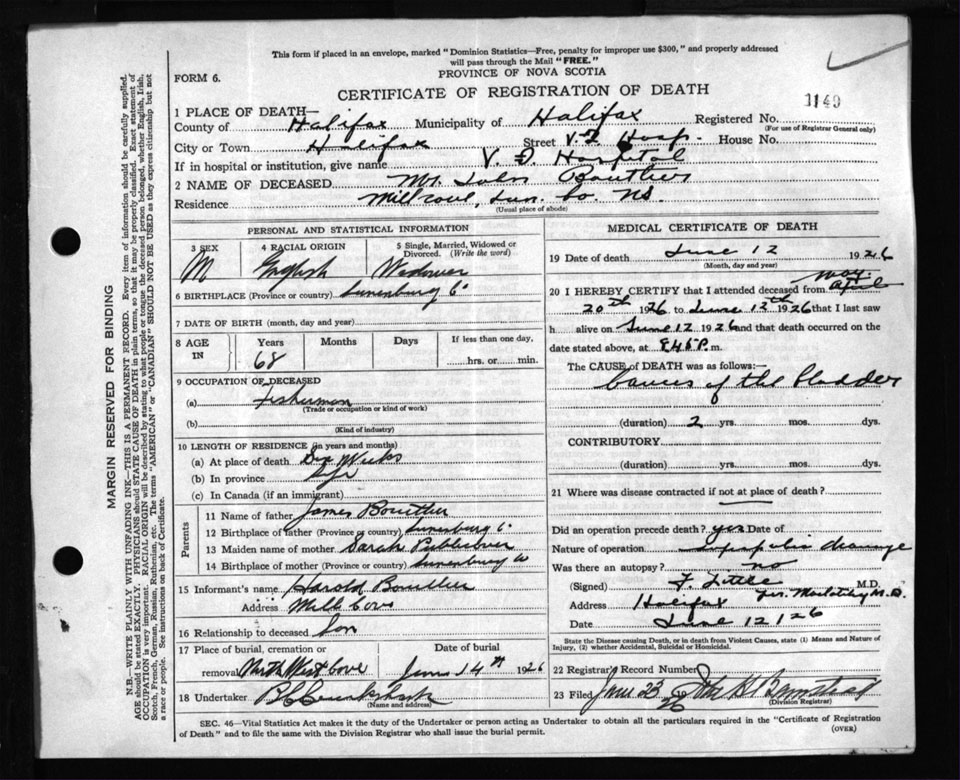 This form if placed in an envelope, marked "Dominion Statistics—Free, penalty for improper use $300," and properly addressed
will pass through the Mail "FREE."
PROVINCE OF NOVA SCOTIA
FORM 6.
CERTIFICATE OF REGISTRATION OF DEATH
1140
1 PLACE OF DEATH—
County of Halifax Municipality of Halifax Registered No.
(For use of Registrar General only)
City or Town Halifax Street V.G. Hosp. House No.
If in hospital or institution, give name V. G. Hospital
2 NAME OF DECEASED Mr. John Boutlier
Residence Mill Cove, Lun. Co. NS.
(Usual place of abode)
PERSONAL AND STATISTICAL INFORMATION
3 SEX M
4 RACIAL ORIGIN English
5 Single, Married, Widowed or Divorced. (Write the word) Widower
6 BIRTHPLACE (Province or country) Lunenburg C.
7 DATE OF BIRTH (month, day and year)
8 AGE IN Years 68 Months Days If less than one day. hrs. or min.
9 OCCUPATION OF DECEASED
(a) Fisherman
(Trade or occupation or kind of work)
(b)
(Kind of industry)
10 LENGTH OF RESIDENCE (in years and months)
(a) At place of death Six Weeks
(b) In province Life
(c) In Canada (if an immigrant)
Parents
11 Name of father James Boutlier
12 Birthplace of father (Province or country) Lunenburg C.
13 Maiden name of mother Sarah Publicover
14 Birthplace of mother (Province or country) Lunenburg Co
15 Informant's name Harold Boutlier
Address Mill Cove
16 Relationship to deceased Son
17 Place of burial, cremation or removal North West Cove
Date of burial June 14th 1926
18 Undertaker
(Name and address)
MEDICAL CERTIFICATE OF DEATH
19 Date of death June 12 1926
(Month, day and year)
May
20 I HEREBY CERTIFY that I attended deceased from April
20th 1926 to June 12th 1926 that I last saw
h alive on June 12 1926 and that death occurred on
date stated above, at 8.45 P. m.
The CAUSE of DEATH was as follows:—
Cancer of the bladder
(duration) 2 yrs. mos. dys.
CONTRIBUTORY
(duration) yrs. mos. dys.
21 Where was disease contracted if not at place of death?
Did an operation precede death? yes Date of
Nature of operation Suprapubic drainage
Was there an autopsy? no
(Signed) F. Little M.D.
Address Halifax
Date June 12/26
State the Disease causing Death, or in death from Violent Causes, state (1) Means and Nature of
Injury, (2) whether Accidental, Suicidal or Homicidal.
22 Registrar's Record Number
23 Filed June 23 26
(Division Registrar)
SEC. 46—Vital Statistics Act makes it the duty of the Undertaker or person acting as Undertaker to obtain all the particulars required in the "Certificate of Registration
of Death" and to file the same with the Division Registrar who shall issue the burial permit.
(OVER)
MARGIN RESERVED FOR BINDING
N.B.—WRITE PLAINLY WITH UNFADING INK—THIS IS A PERMANENT RECORD. Every item of information should be carefully supplied.
AGE should be stated EXACTLY. PHYSICIANS should STATE CAUSE OF DEATH in plain terms, so that it may be properly classified. Exact statement of
OCCUPATION is very important. RACIAL ORIGIN will be described by stating to what people or tongue the deceased person belonged, whether English, Irish,
Scotch, French, German, Russian, Ruthenian, etc. The terms "AMERICAN" or "CANADIAN" SHOULD NOT BE USED as they express citizenship but not
a race or people. See instructions on back of Certificate.